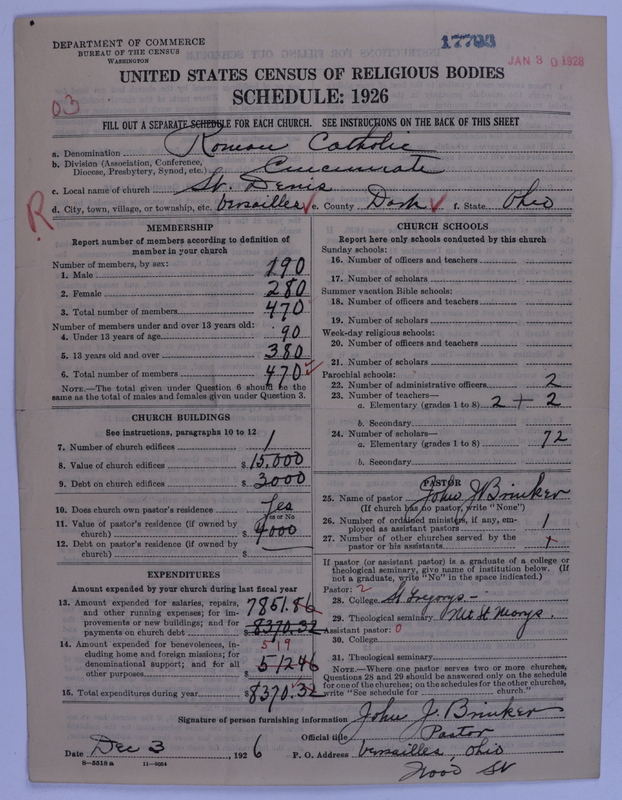 DEPARTMENT OF COMMERCE
BUREAU OF THE CENSUS
WASHINGTON
17793
JAN 30 1928
UNITED STATES CENSUS OF RELIGIOUS BODIES
SCHEDULE: 1926
03
FILL OUT A SEPARATE SCHEDULE FOR EACH CHURCH. SEE INSTRUCTIONS ON THE BACK OF THIS SHEET
a. Denomination Roman Catholic
b. Division (Association, Conference, Diocese, Presbytery, Synod, etc.) Cincinnati
c. Local name of church St. Denis
R
d. City, town, village, or township, etc. Versailles e. County Dark f. State Ohio
MEMBERSHIP
Report number of members according to definition of
member in your church
Number of members, by sex:
1. Male 190
2. Female 280
3. Total number of members 470
Number of members under and over 13 years old:
4. Under 13 years of age 90
5. 13 years old and over 380
6. Total number of members 470
NOTE.—The total given under Question 6 should be the
same as the total of males and females given under Question 3.
CHURCH BUILDINGS
See instructions, paragraphs 10 to 12
7. Number of church edifices 1
8. Value of church edifices $15,000
9. Debt on church edifices $3000
10. Does church own pastor's residence? Yes
Yes or No
11. Value of pastor's residence (if owned by
church) $4000
12. Debt on pastor's residence (if owned by
church) $ —
EXPENDITURES
Amount expended by your church during last fiscal year
13. Amount expended for salaries, repairs, 7851.86
and other running expenses; for im-
provements or new buildings; and for
payments on church debt $8370.32
14. Amount expended for benevolences, in- 519
cluding home and foreign missions; for
denominational support; and for all
other purposes $512 46
15. Total expenditures during year $8370.32
CHURCH SCHOOLS
Report here only schools conducted by this church
Sunday schools:
16. Number of officers and teachers
17. Number of scholars
Summer vacation Bible schools:
18. Number of officers and teachers
19. Number of scholars
Week-day religious schools:
20. Number of officers and teachers
21. Number of scholars
Parochial schools:
22. Number of administrative officers 2
23. Number of teachers—
a. Elementary (grades 1 to 8) 2 + 2
b. Secondary
24. Number of scholars—
a. Elementary (grades 1 to 8) 72
b. Secondary
PASTOR
25. Name of pastor John J Brinker
(If church has no pastor, write "None")
26. Number of ordained ministers, if any, em-
ployed as assistant pastors 1
27. Number of other churches served by the
pastor or his assistants 1
If pastor (or assistant pastor) is a graduate of a college or
theological seminary, give name of institution below. (If
not a graduate, write "No" in the space indicated.)
Pastor: 2
28. College St Gregorys —
29. Theological seminary Mt St Marys.
Assistant pastor: 0
30. College
31. Theological seminary
NOTE.—Where one pastor serves two or more churches,
Questions 28 and 29 should be answered only on the schedule
for one of the churches; on the schedules for the other churches,
write "See schedule for church."
Signature of person furnishing information John J. Brinker
Official title Pastor
Date Dec 3, 1926 P. O. Address Versailles, Ohio
8—5518 a 11—9064
Wood St